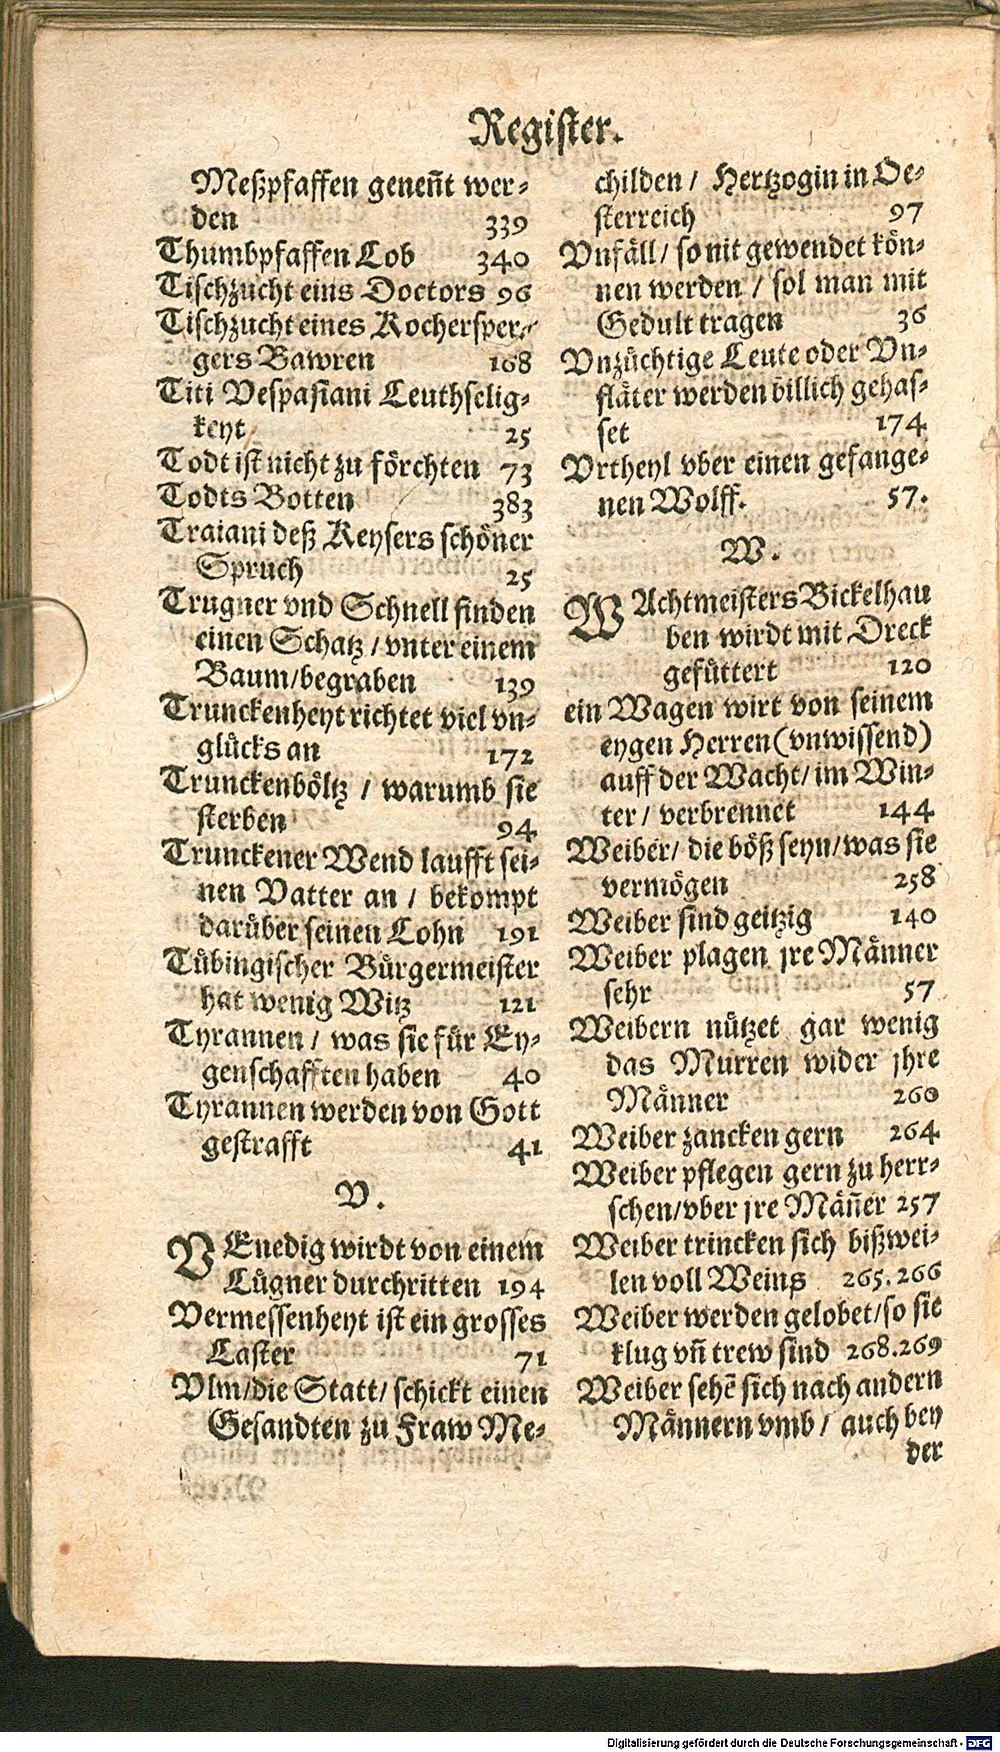 Register.
Meßpfaffen geneñt wer-
den 339
Thumbpfaffen Lob 340
Tischzucht eins Doctors 96
Tischzucht eines Kochersper-
gers Bawren 168
Titi Vespasiani Leuthselig-
keyt 25
Todt ist nicht zu förchten 73
Todts Botten 383
Traiani deß Keysers schöner
Spruch 25
Trugner vnd Schnell finden
einen Schatz / vnter einem
Baum/begraben 139
Trunckenheyt richtet viel vn-
glücks an 172
Trunckenböltz / warumb sie
sterben 94
Trunckener Wend laufft sei-
nen Vatter an / bekompt
darüber seinen Lohn 191
Tübingischer Bürgermeister
hat wenig Witz 121
Tyrannen / was sie für Ey-
genschafften haben 40
Tyrannen werden von Gott
gestrafft 41
V.
VEnedig wirdt von einem
Lügner durchritten 194
Vermessenheyt ist ein grosses
Laster 71
Vlm/die Statt/ schickt einen
Gesandten zu Fraw Me-
childen / Hertzogin in Oe-
sterreich 97
Vnfäll/ so nit gewendet kön-
nen werden / sol man mit
Gedult tragen 36
Vnzüchtige Leute oder Vn-
fläter werden billich gehas-
set 174
Vrtheyl vber einen gefange-
nen Wolff. 57.
W.
WAchtmeisters Bickelhau
ben wirdt mit Dreck
gefüttert 120
ein Wagen wirt von seinem
eygen Herren (vnwissend)
auff der Wacht/ im Win-
ter / verbrennet 144
Weiber/ die böß seyn/was sie
vermögen 258
Weiber sind geitzig 140
Weiber plagen jre Männer
sehr 57
Weibern nützet gar wenig
das Murren wider jhre
Männer 260
Weiber zancken gern 264
Weiber pflegen gern zu herr-
schen/vber jre Mäñer 257
Weiber trincken sich bißwei-
len voll Weins 265.266
Weiber werden gelobet/so sie
klug vñ trew sind 268.269
Weiber sehē sich nach andern
Männern vmb / auch bey
der
Digitalisierung gefördert durch die Deutsche Forschungsgemeinschaft - DFG